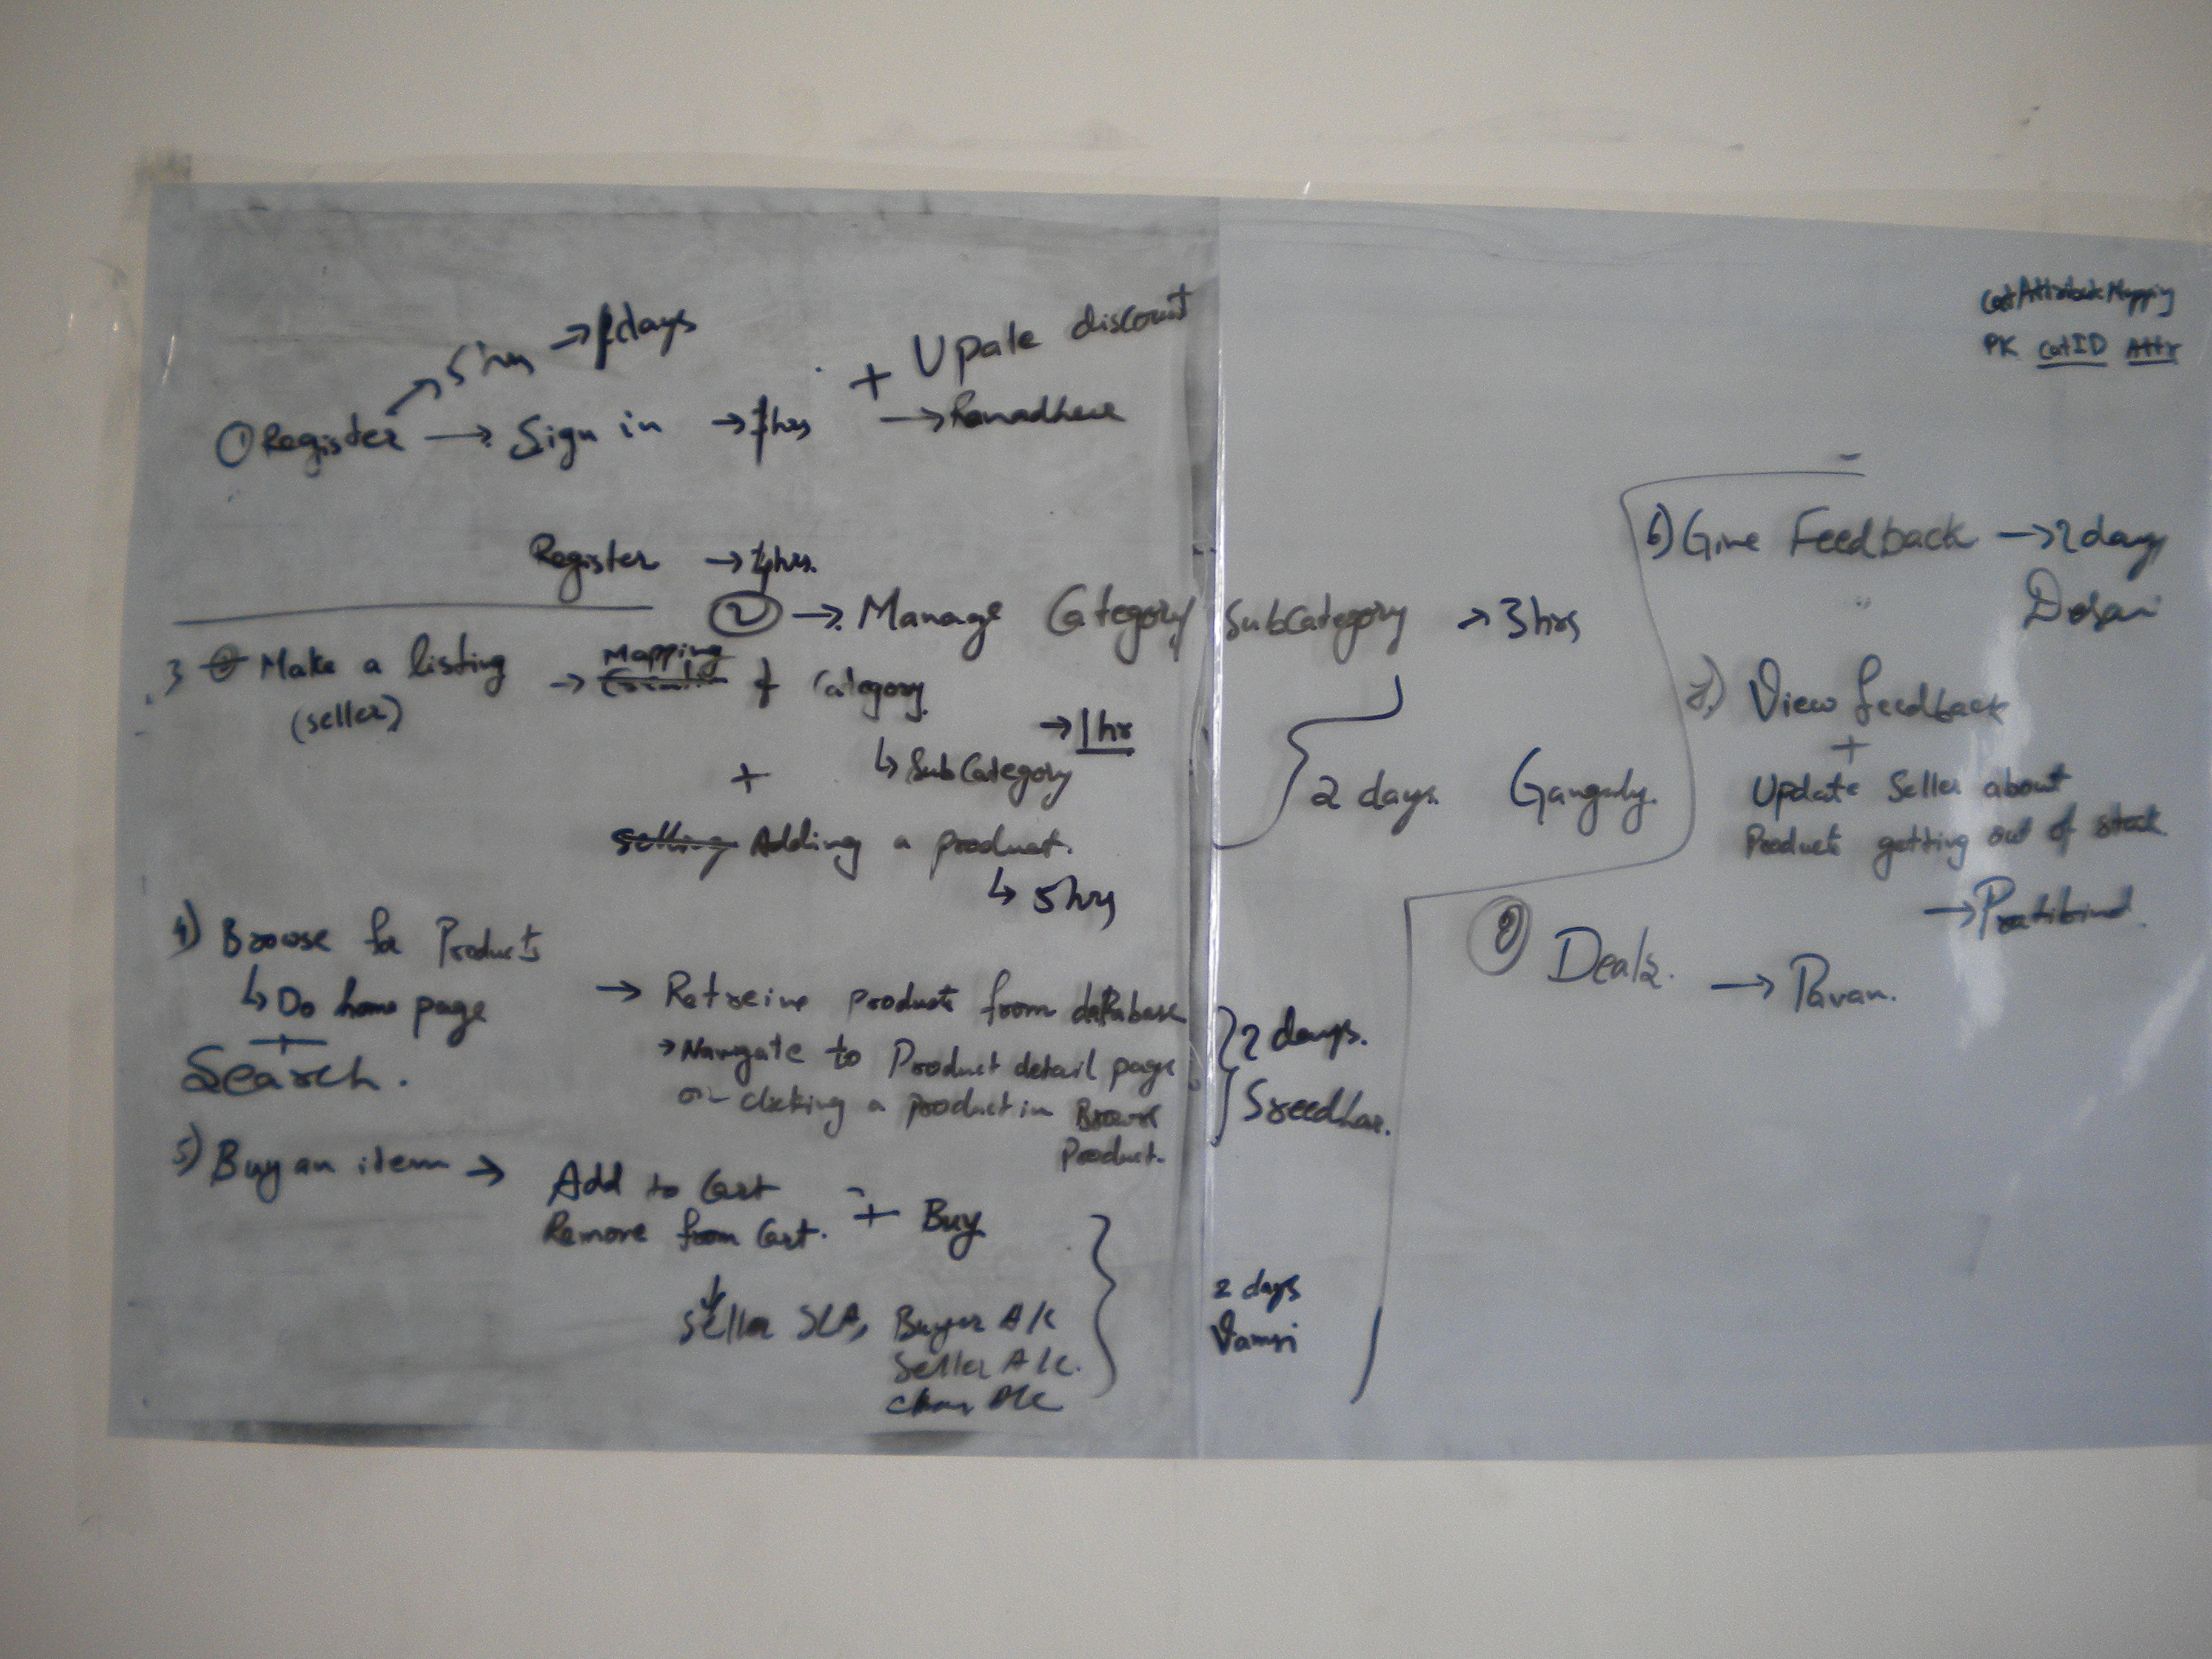 CatAttributeMapping
PK CatID Attr
5 hrs → days
+ Upate discount
① Register → Sign in → hrs → Ranadheve
Register → 4hrs.
② → Manage Category SubCategory → 3hrs
3 Make a listing → Mapping of Category
(seller)
→ 1hr
+ ↳ SubCategory
2 days. Ganguly.
selling Adding a product.
↳ 5hrs
4) Browse for Products
↳ Do home page
+
Search.
→ Retreive products from database
→ Navigate to Product detail page
on clicking a product in Browse
Product.
2 days.
Sreedhar.
5) Buy an item →
Add to Cart + Buy
Remove from Cart.
Seller SLA, Buyer A/c
Seller A/c.
A/c
2 days
Vamsi
6) Give Feedback → 2 days
7) View feedback
+
Update Seller about
Products getting out of stock.
→
8 Deals. → Pavan.